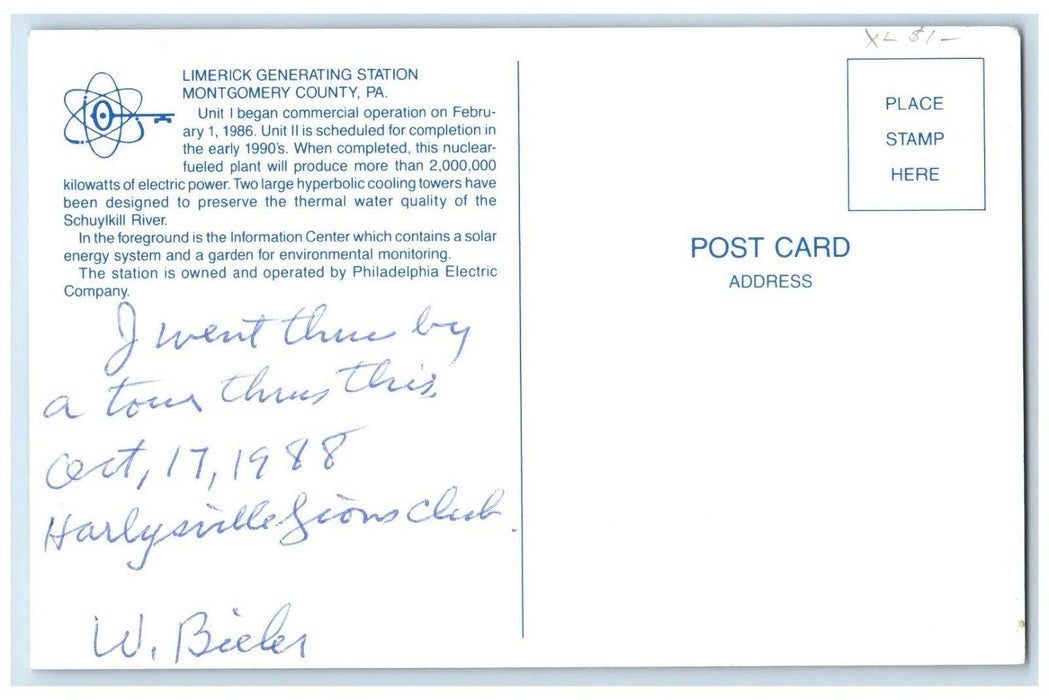 XL $1-
LIMERICK GENERATING STATION
MONTGOMERY COUNTY, PA.
Unit I began commercial operation on Febru-
ary 1, 1986. Unit II is scheduled for completion in
the early 1990's. When completed, this nuclear-
fueled plant will produce more than 2,000,000
kilowatts of electric power. Two large hyperbolic cooling towers have
been designed to preserve the thermal water quality of the
Schuylkill River.
In the foreground is the Information Center which contains a solar
energy system and a garden for environmental monitoring.
The station is owned and operated by Philadelphia Electric
Company.
I went thru by
a tour thru this,
Oct, 17, 1988
Harlysville Lions Club.
W. Bieler
PLACE
STAMP
HERE
POST CARD
ADDRESS